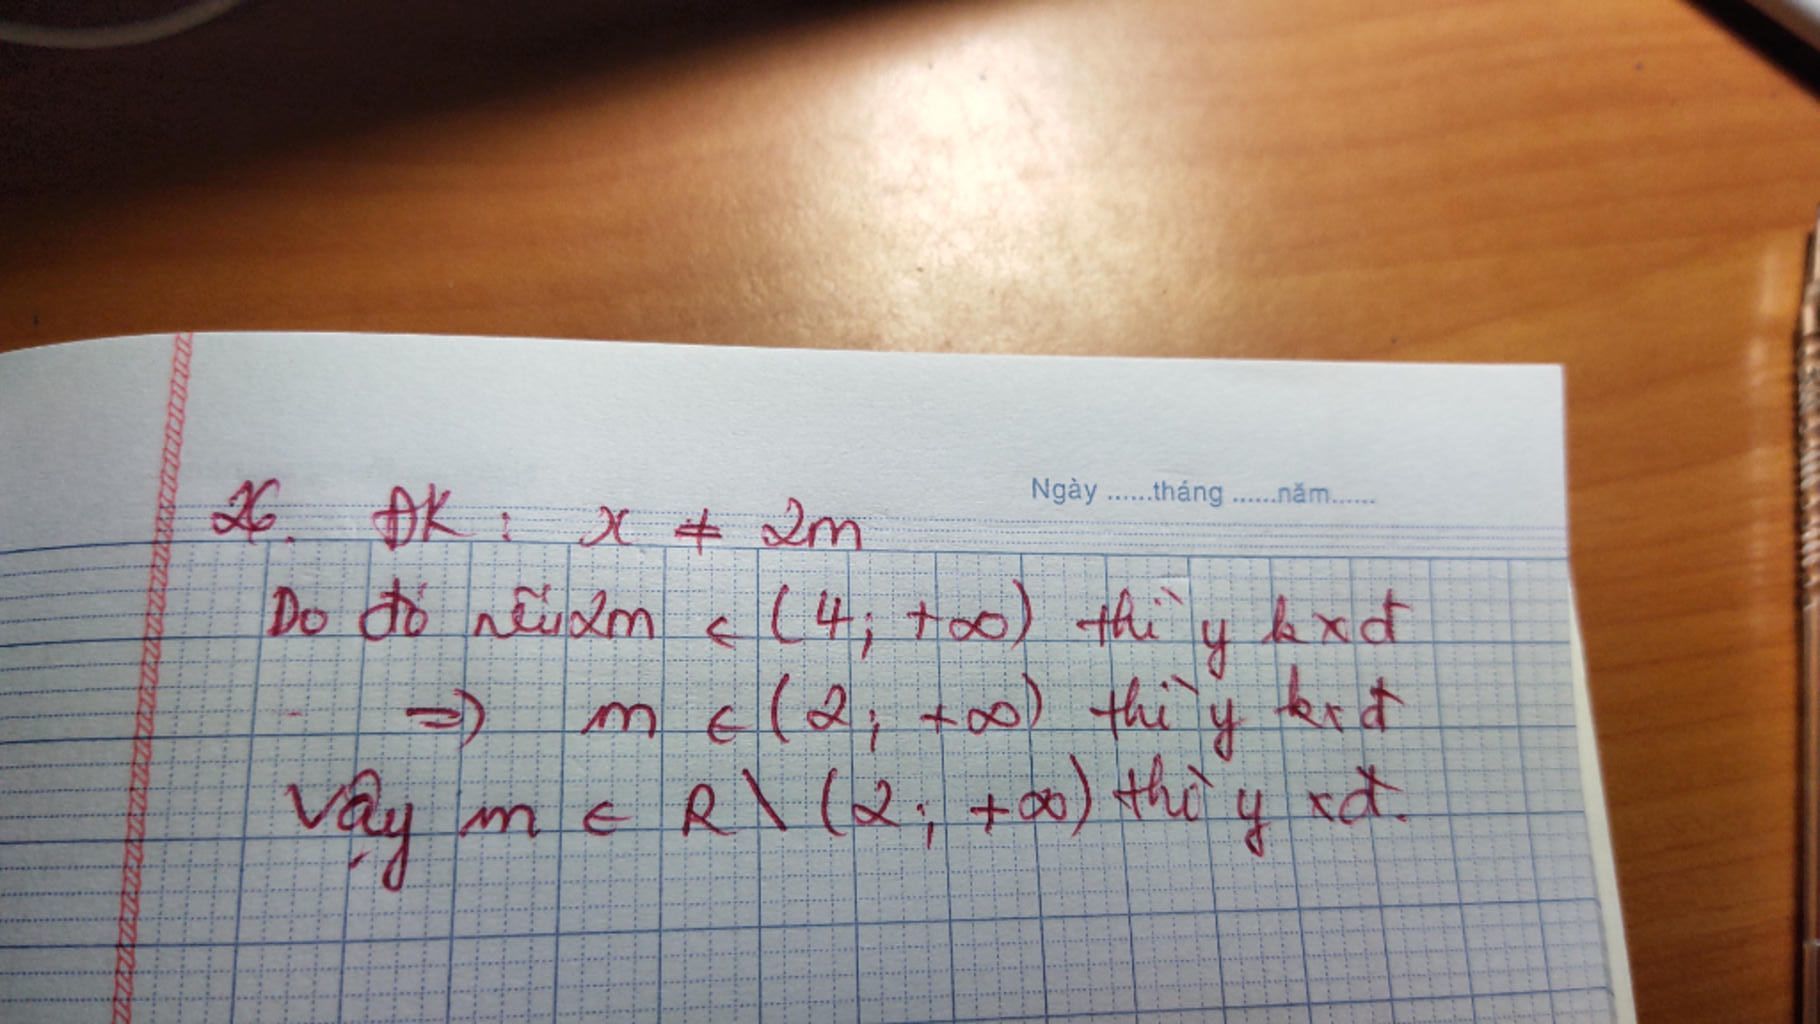 Ngày ......tháng ......năm......
26. ĐK : x ≠ 2m
Do đó nếu 2m ∈ (4; +∞) thì y kxđ
=> m ∈ (2; +∞) thì y kxđ
Vậy m ∈ R \ (2; +∞) thì y xđ.